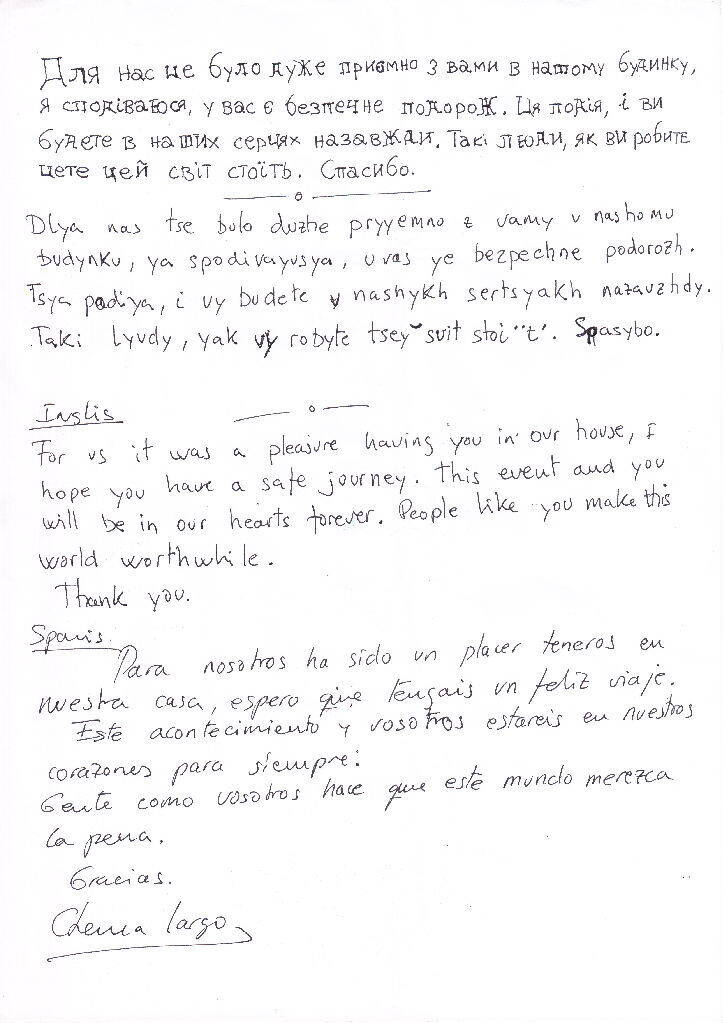 Для нас це було дуже приємно з вами в нашому будинку,
я сподіваюся, у вас є безпечне подорож. Ця подія, і ви
будете в наших серцях назавжди. Такі люди, як ви робите
цете цей світ стоїть. Спасибо.
Dlya nas tse bulo duzhe pryyemno z vamy v nashomu
budynku, ya spodivayusya, u vas ye bezpechne podorozh.
Tsya podiya, i vy budete v nashykh sertsyakh nazavzhdy.
Taki lyudy, yak vy robyte tseyˇ svit stoi¨t'. Spasybo.
Inglis
For us it was a pleasure having you in our house, I
hope you have a safe journey. This event and you
will be in our hearts forever. People like you make this
world worthwhile.
Thank you.
Spanis.
Para nosotros ha sido un placer teneros en
nuestra casa, espero que tengais un feliz viaje.
Este acontecimiento y vosotros estareis en nuestros
corazones para siempre.
Gente como vosotros hace que este mundo merezca
la pena.
Gracias.
Chema largo